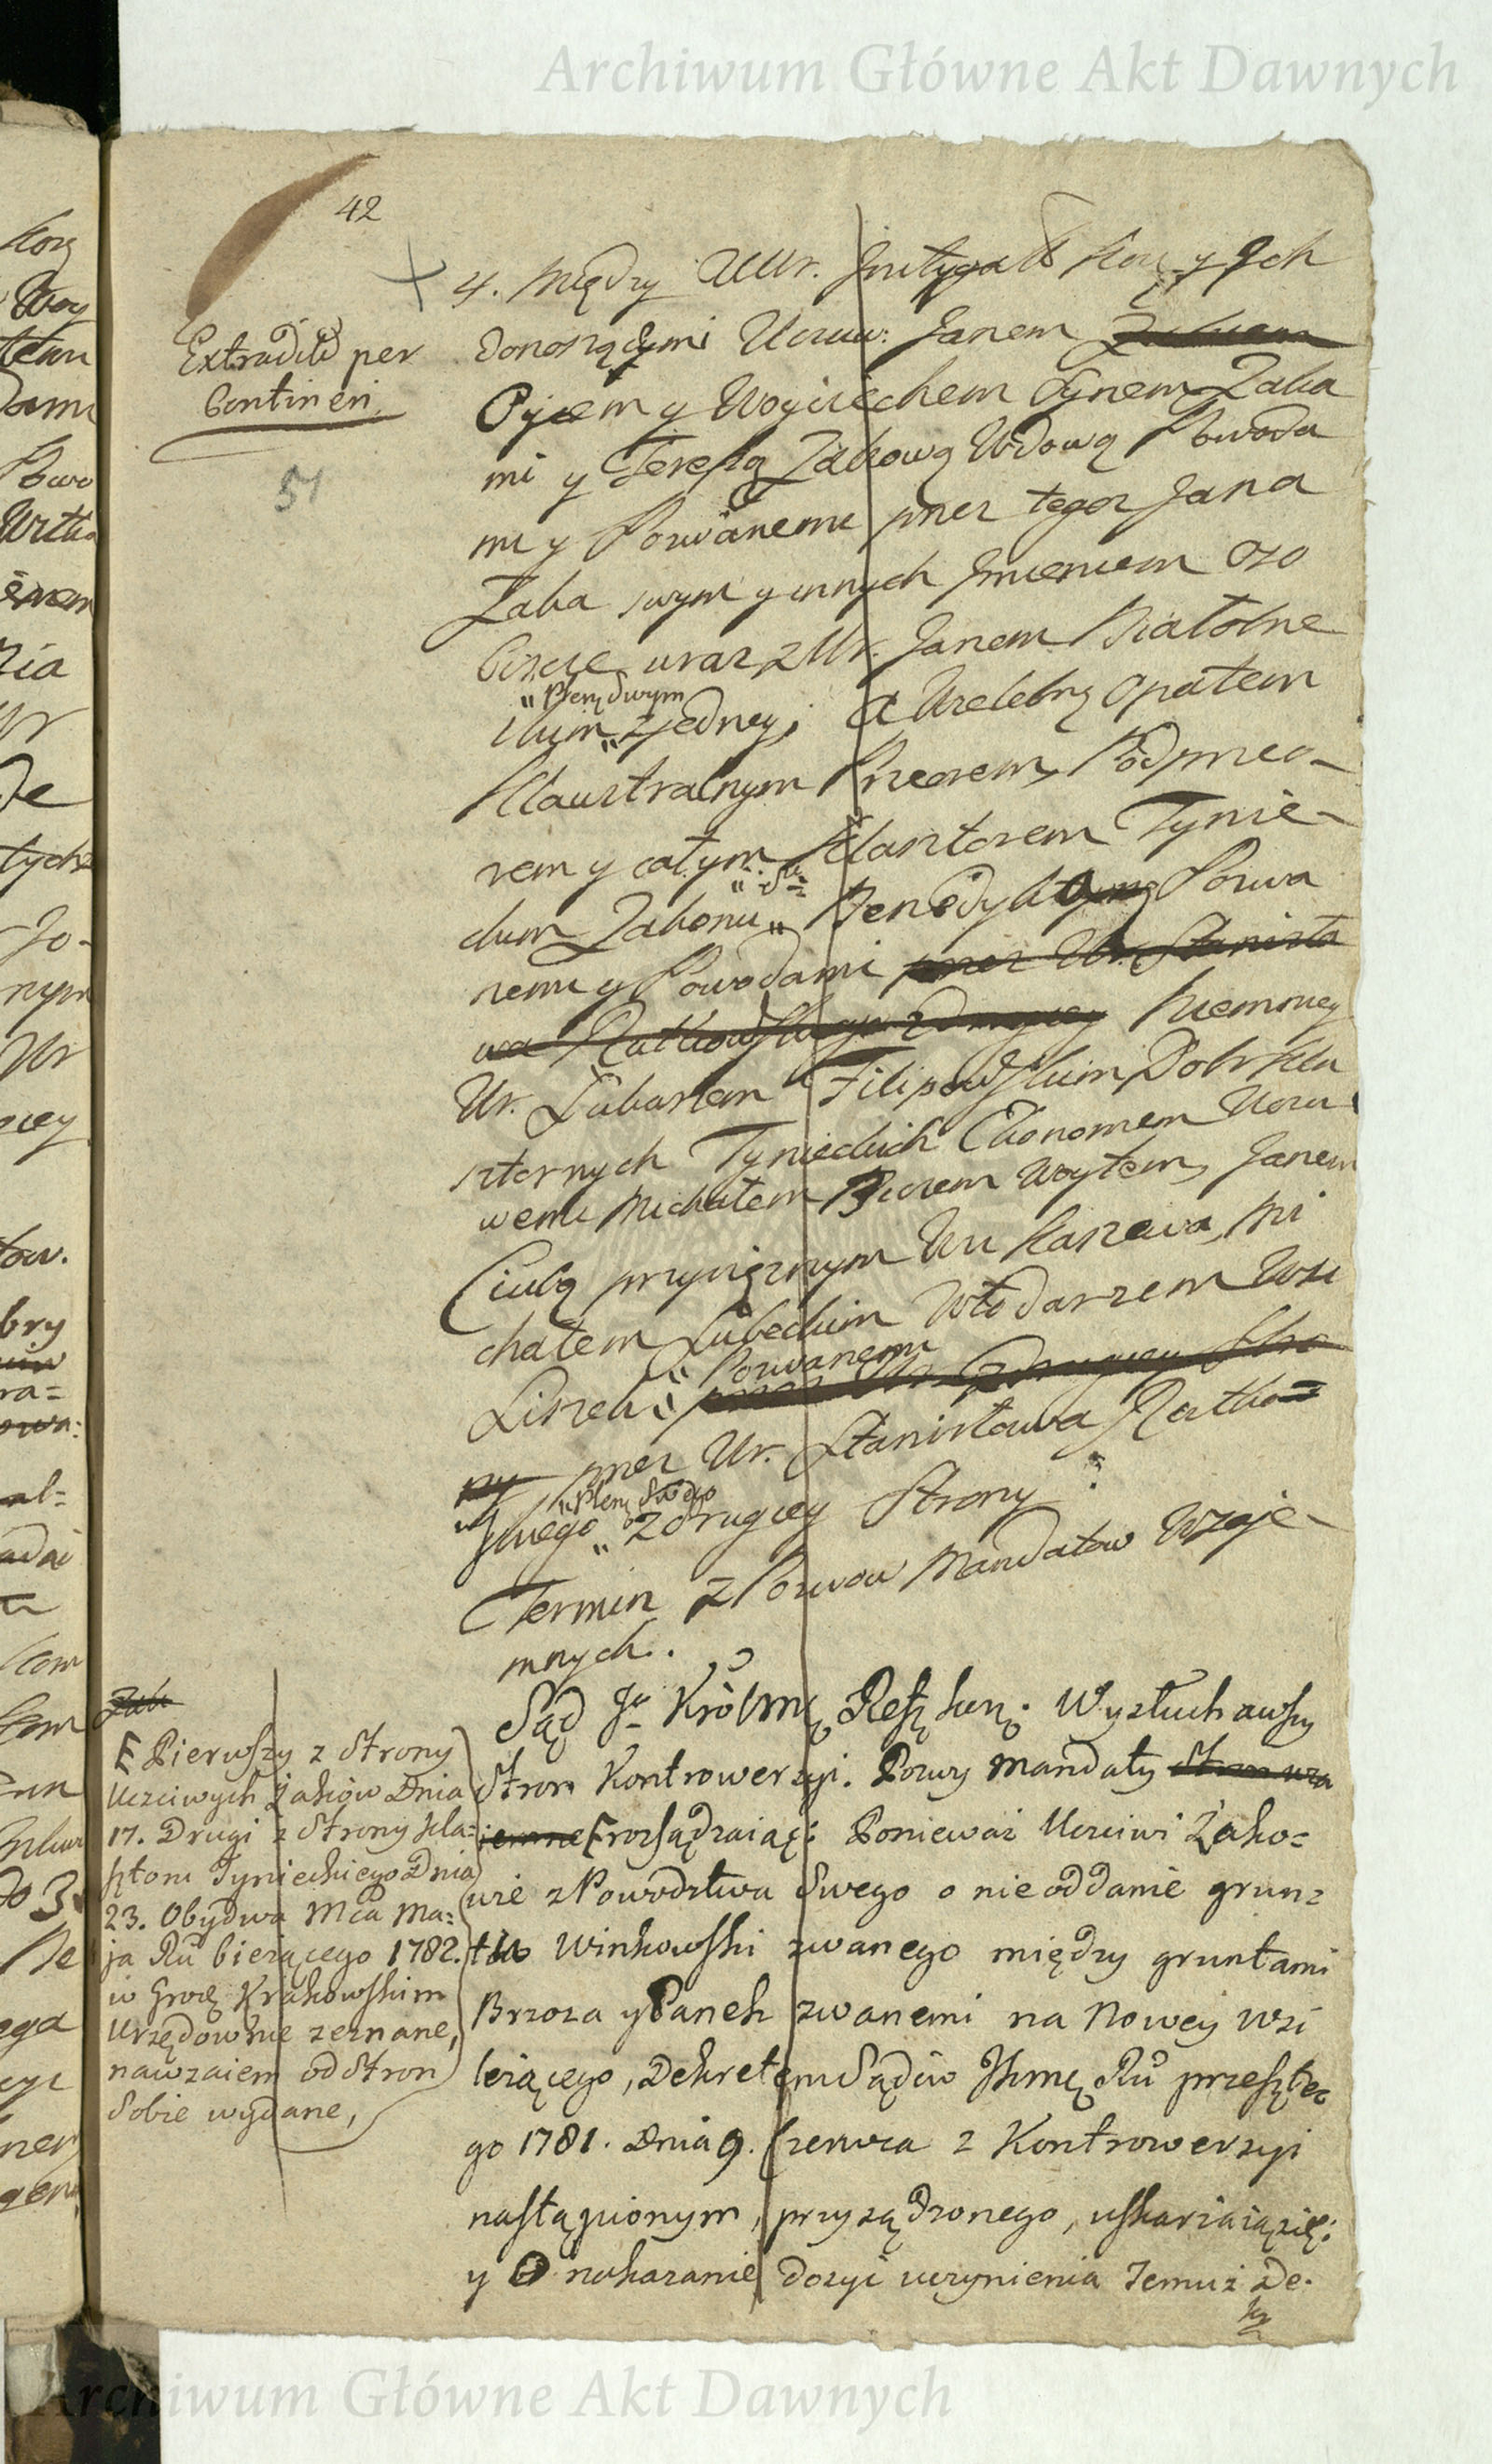 Archiwum Główne Akt Dawnych
42
Extradit per
Continen
51
4. Między UUr. Jnstyga Kor y ich
donoszącymi Uczciw: Janem
Oycem y Woyciechem Synem Żaka
mi y Tereszą Żakową Wdową Powoda
mi y Pozwanemi przez tegoż Jana
Żaka swym y innych Jmieniem oso
biście wraz z Ur. Janem Białobrze
"Plenp dwym
skim " z jedney; a Wielebną Opatem
Klausztralnym Przeorem, Podprzeo-
rem y całym Klasztorem Tynie-
ckim Zakonu " Benedykta Pozwa
nemi y Powodami przez Ur. Stanisła
wa Ratkowskiego z drugiey Niemniey
Ur. Łukaszem Filipowskim Dobr Kla
sztornych Tynieckich Ekonomem Uczci
wemi Michałem Woytem, Janem
Ciubą przysiężnym Wsi Kaszowa, Mi
chałem Lubeckim Włodarzem Wsi
" Pozwanemi
Liszek " z drugiey Stro
ny przez Ur. Stanisława Ratko=
wskiego " z drugiey Strony
Termin z Pozwow Mandatow Wzaje-
mnych.
Sąd Jo KrólMci Wysłuchawszy
Stron Kontrowersyi. Pozwy Mandaty Stron wza
iemne rozsądzaiąc: Ponieważ Uczciwi Żako=
wie z Powodztwa Swego o nie oddanie grun=
tu Winkowski zwanego między gruntami
Brzoza y Panek zwanemi na Nowey wsi
leżącego, Dekretem Sądów JKmci Ru przeszłe=
go 1781. Dnia 9. Czerwca z Kontrowersyi
nastąpionym, przysądzonego, uskarżaią się:
y O nakazanie dosyć uczynienia Temuż De-
kr
Żak
Pierwszy z Strony
Uczciwych Żaków Dnia
17. Drugi z Strony Kla=
sztoru Tynieckiego Dnia
23. Obydwa Mca Ma=
ja Ru bieżącego 1782.
w Grodz Krakowskim
Urzędownie zeznane,
nawzaiem od Stron
Sobie wydane,
Archiwum Główne Akt Dawnych